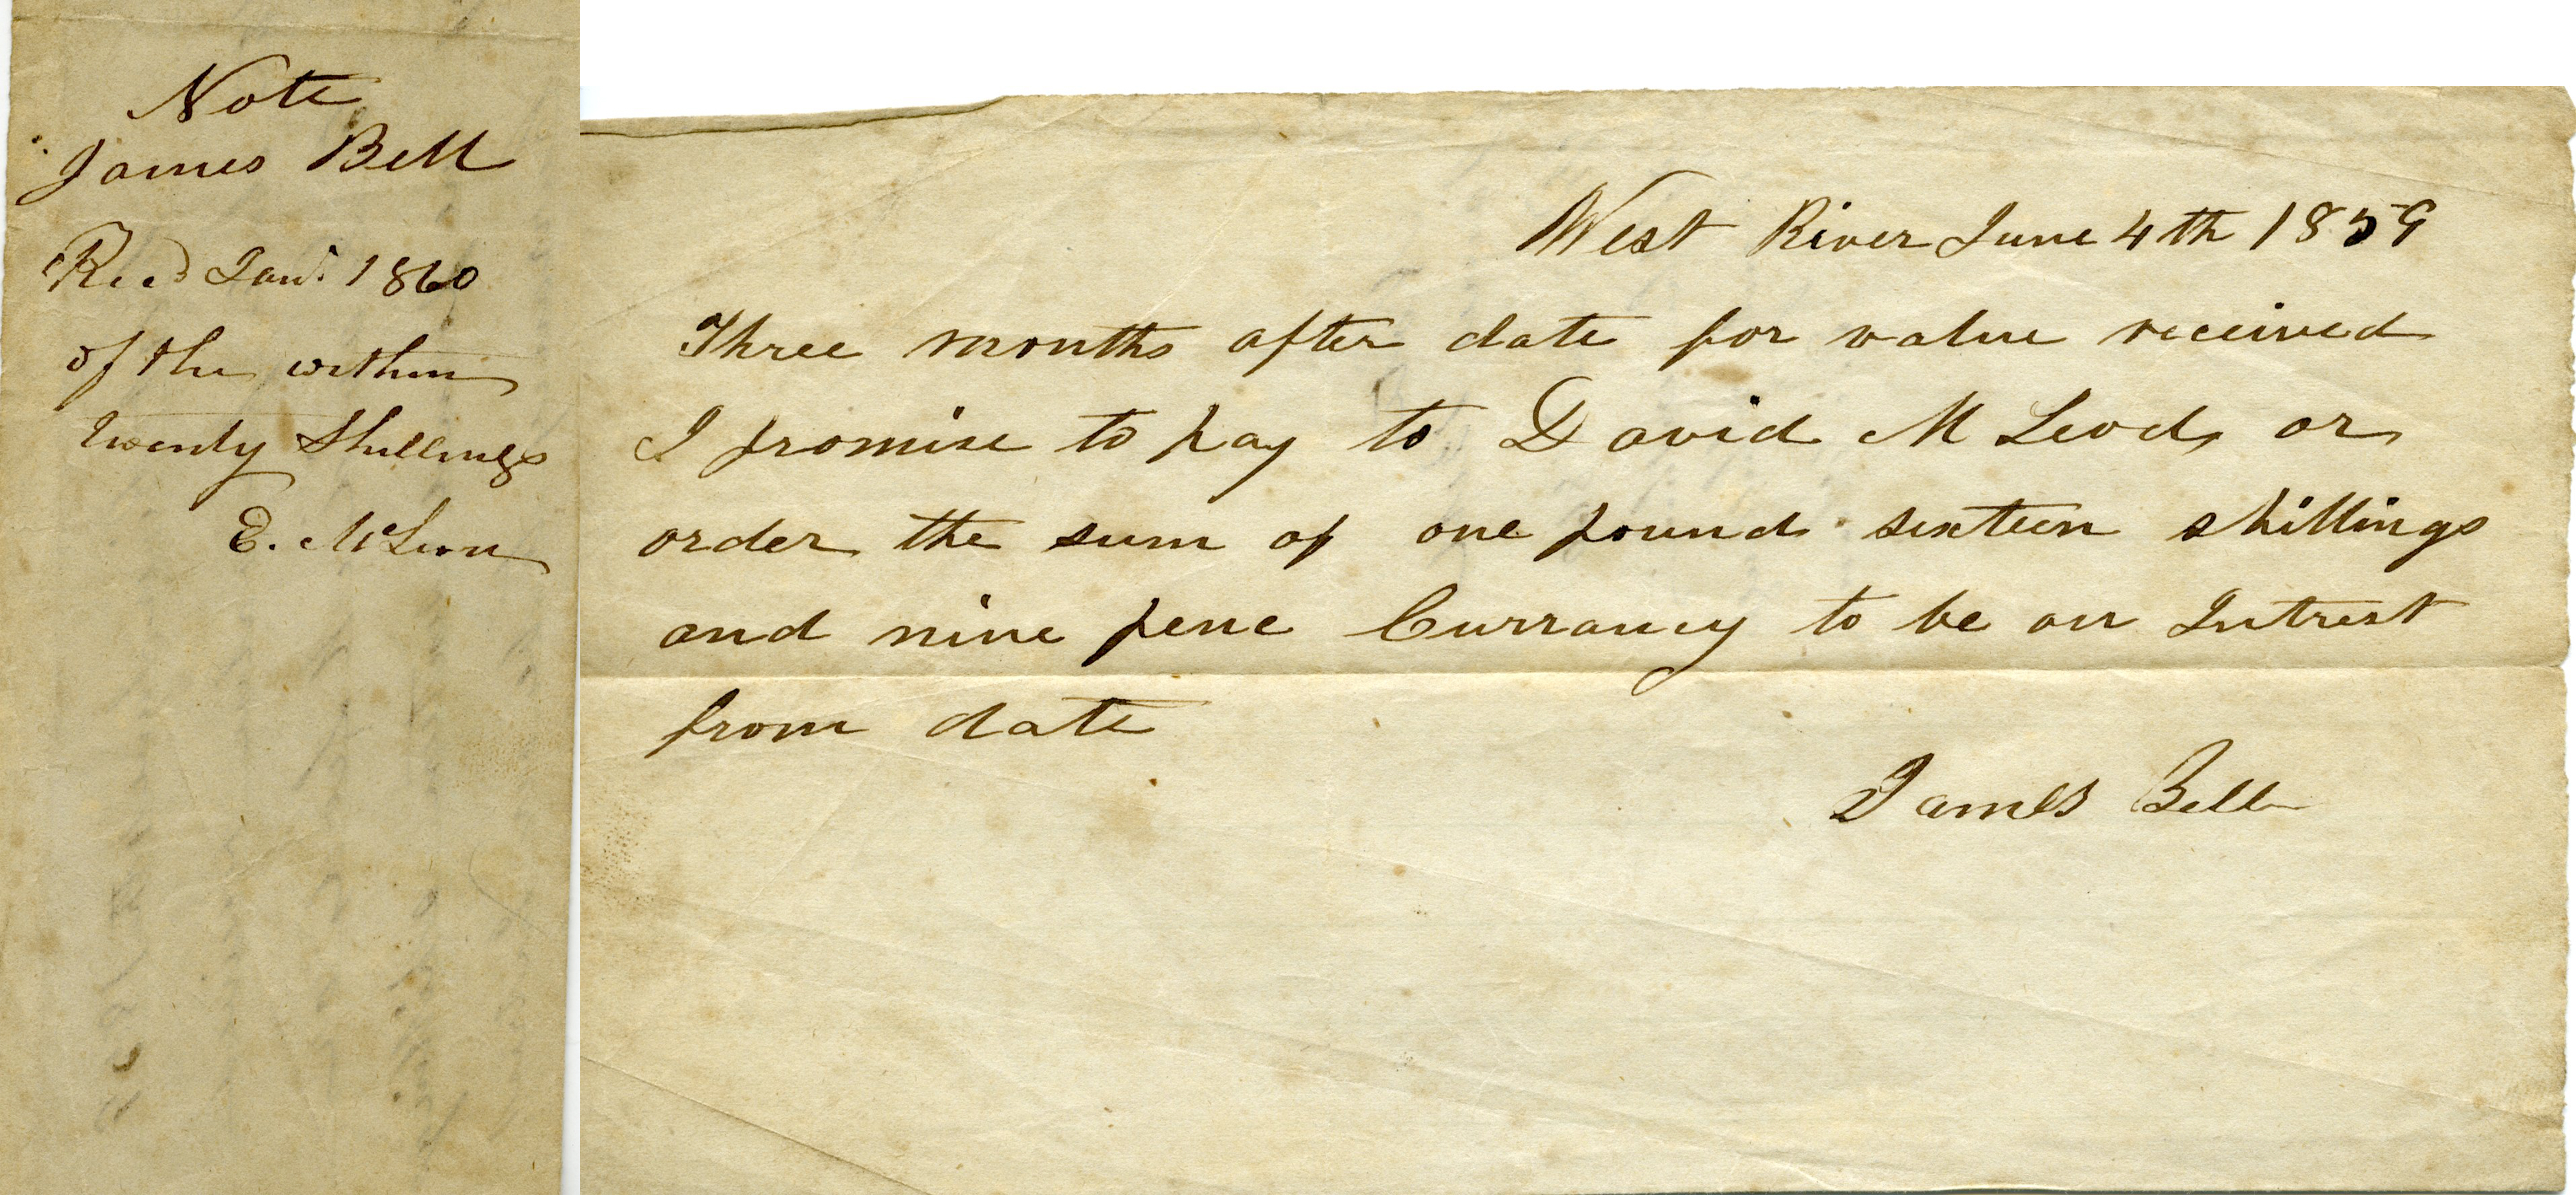 Note
James Bell
Recd Jany 1860
of the within
Twenty Shillings
E. McLeon
West River June 4th 1859
Three months after date for value received
I promise to pay to David M Leod or
order the sum of one pound sixteen shillings
and nine penc Currancy to be on Intrest
from date
James Bell